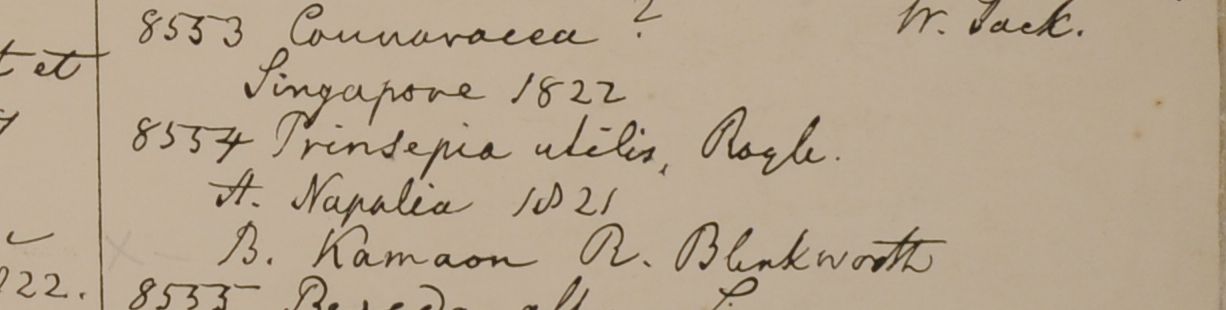 8553 Connaracea ? W. Jack.
t et
Singapore 1822
8554 Prinsepia utilis, Royle.
A. Napalia 1821
B. Kamaon R. Blinkworth
822.
8555